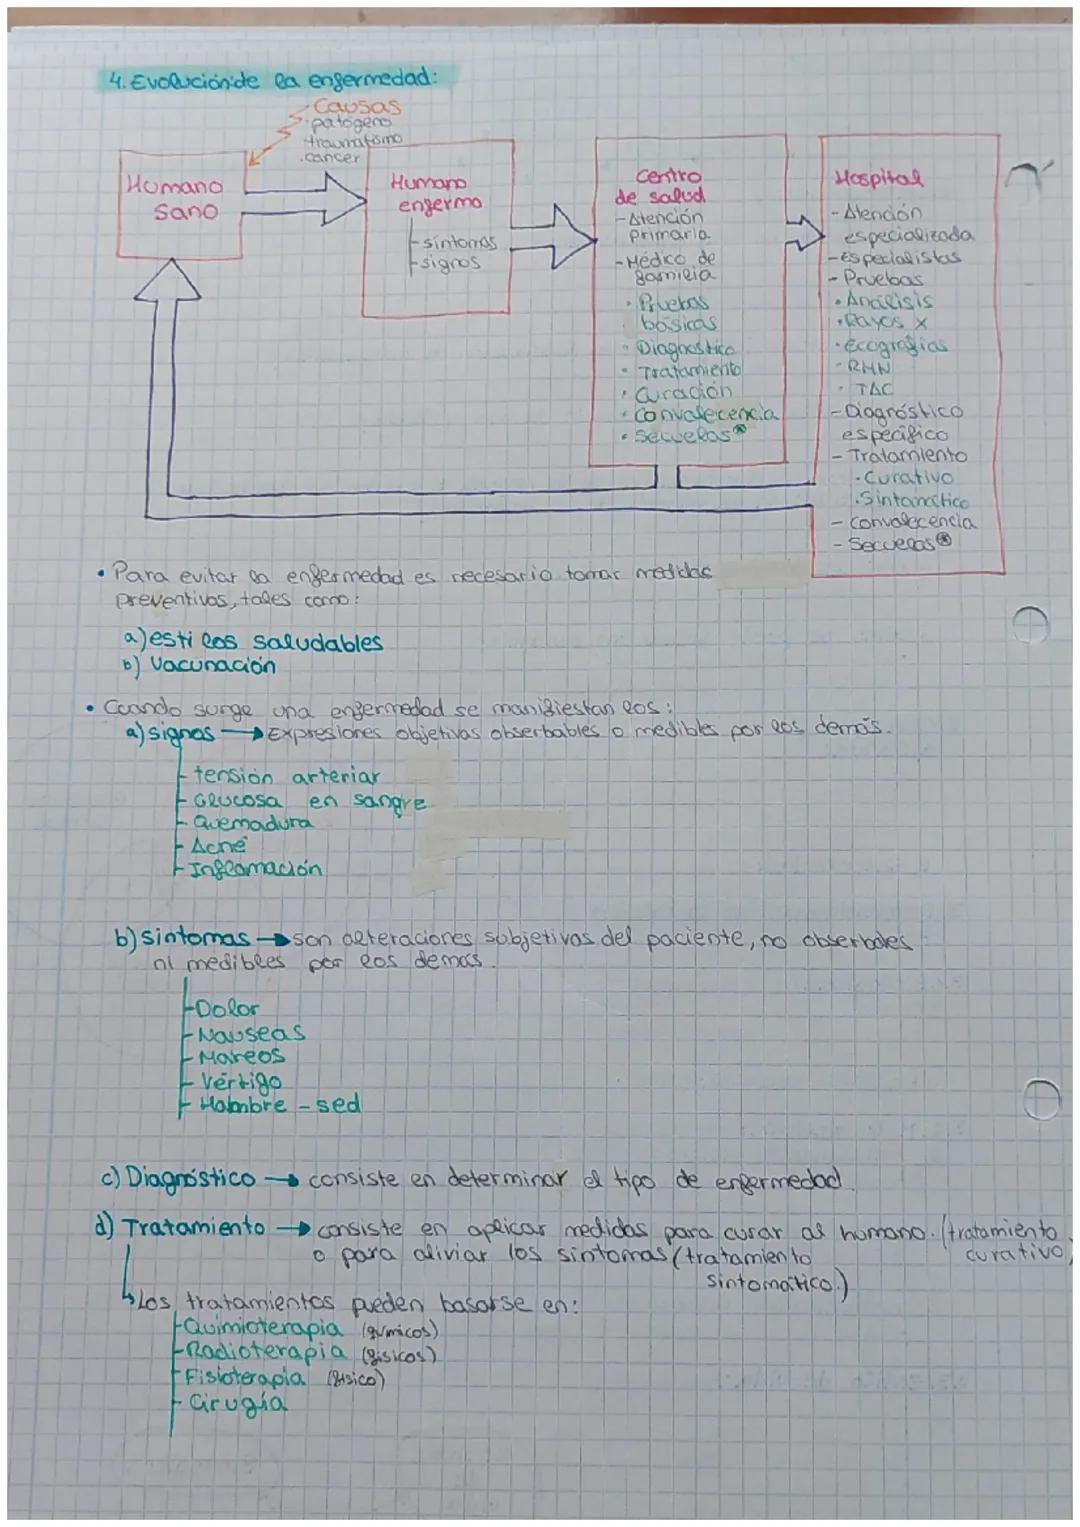 4. Evolución de la enfermedad:
Causas
·patógeno
·traumatismo
·cancer
Humano
sano
Humano
enfermo
-síntomas
-signos
Centro
de salud
-Atención
primaria
-Médico de
familia
·Pruebas
básicas
·Diagnostico
·Tratamiento
·Curación
·Convalecencia
·Secuelas*
Hospital
-Atención
especializada
-Especialistas
-Pruebas
·Análisis
·Rayos X
·Ecografías
·RMN
·TAC
-Diagnóstico
específico
-Tratamiento
·Curativo
·Sintomático
-convalecencia
-Secuelas*
• Para evitar la enfermedad es necesario tomar medidas
preventivas, tales como:
a) estilos saludables
b) Vacunación
• Cuando surge una enfermedad se manifiestan los:
a) signos → Expresiones objetivas obserbables o medibles por los demás.
-tensión arteriar
-Glucosa en sangre
-Quemadura
-Acné
-Inflamación
b) síntomas → son alteraciones subjetivas del paciente, no obserbales
ni medibles por los demás.
-Dolor
-Nauseas
-Mareos
-Vértigo
-Hambre - sed
c) Diagnóstico → consiste en determinar el tipo de enfermedad.
d) Tratamiento → consiste en aplicar medidas para curar al humano. (tratamiento
curativo)
o para aliviar los síntomas (tratamiento
sintomático.)
Los tratamientos pueden basarse en:
-Quimioterapia (químicos)
-Radioterapia (físicos)
-Fisioterapia (físico)
-Cirugía